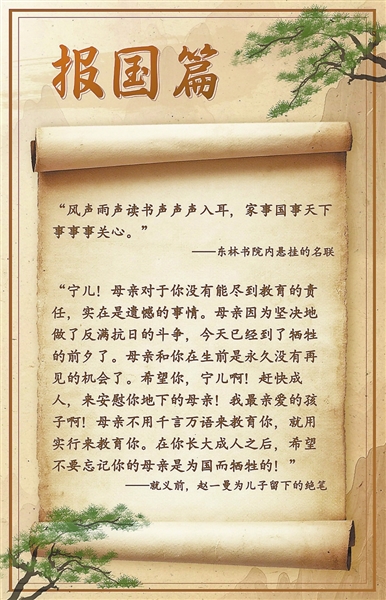 报国篇
“风声雨声读书声声声入耳，家事国事天下
事事事关心。”
——东林书院内悬挂的名联
“宁儿！母亲对于你没有能尽到教育的责
任，实在是遗憾的事情。母亲因为坚决地
做了反满抗日的斗争，今天已经到了牺牲
的前夕了。母亲和你在生前是永久没有再
见的机会了。希望你，宁儿啊！赶快成
人，来安慰你地下的母亲！我最亲爱的孩
子啊！母亲不用千言万语来教育你，就用
实行来教育你。在你长大成人之后，希望
不要忘记你的母亲是为国而牺牲的！”
——就义前，赵一曼为儿子留下的绝笔